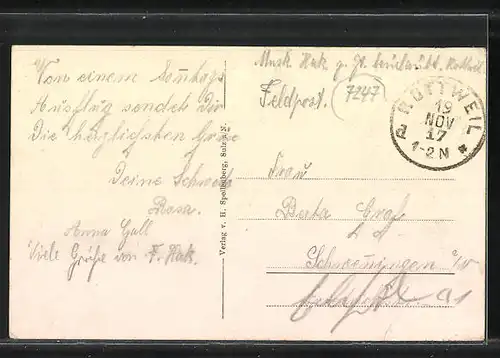 Von einem Sonntags
Ausflug sendet Dir
Die herzlichsten Grüße
Deine Schwest
Rosa.
Anna Gall
Viele Grüße von F. Katz.
Verlag v. H. Spellenberg, Sulz a. N.
Musk. Katz z. Zt. beurlaubt
Feldpost.
7247
ROTTWEIL
19
NOV
17
1-2 N
Frau
Berta Graf
Schwenningen a/N